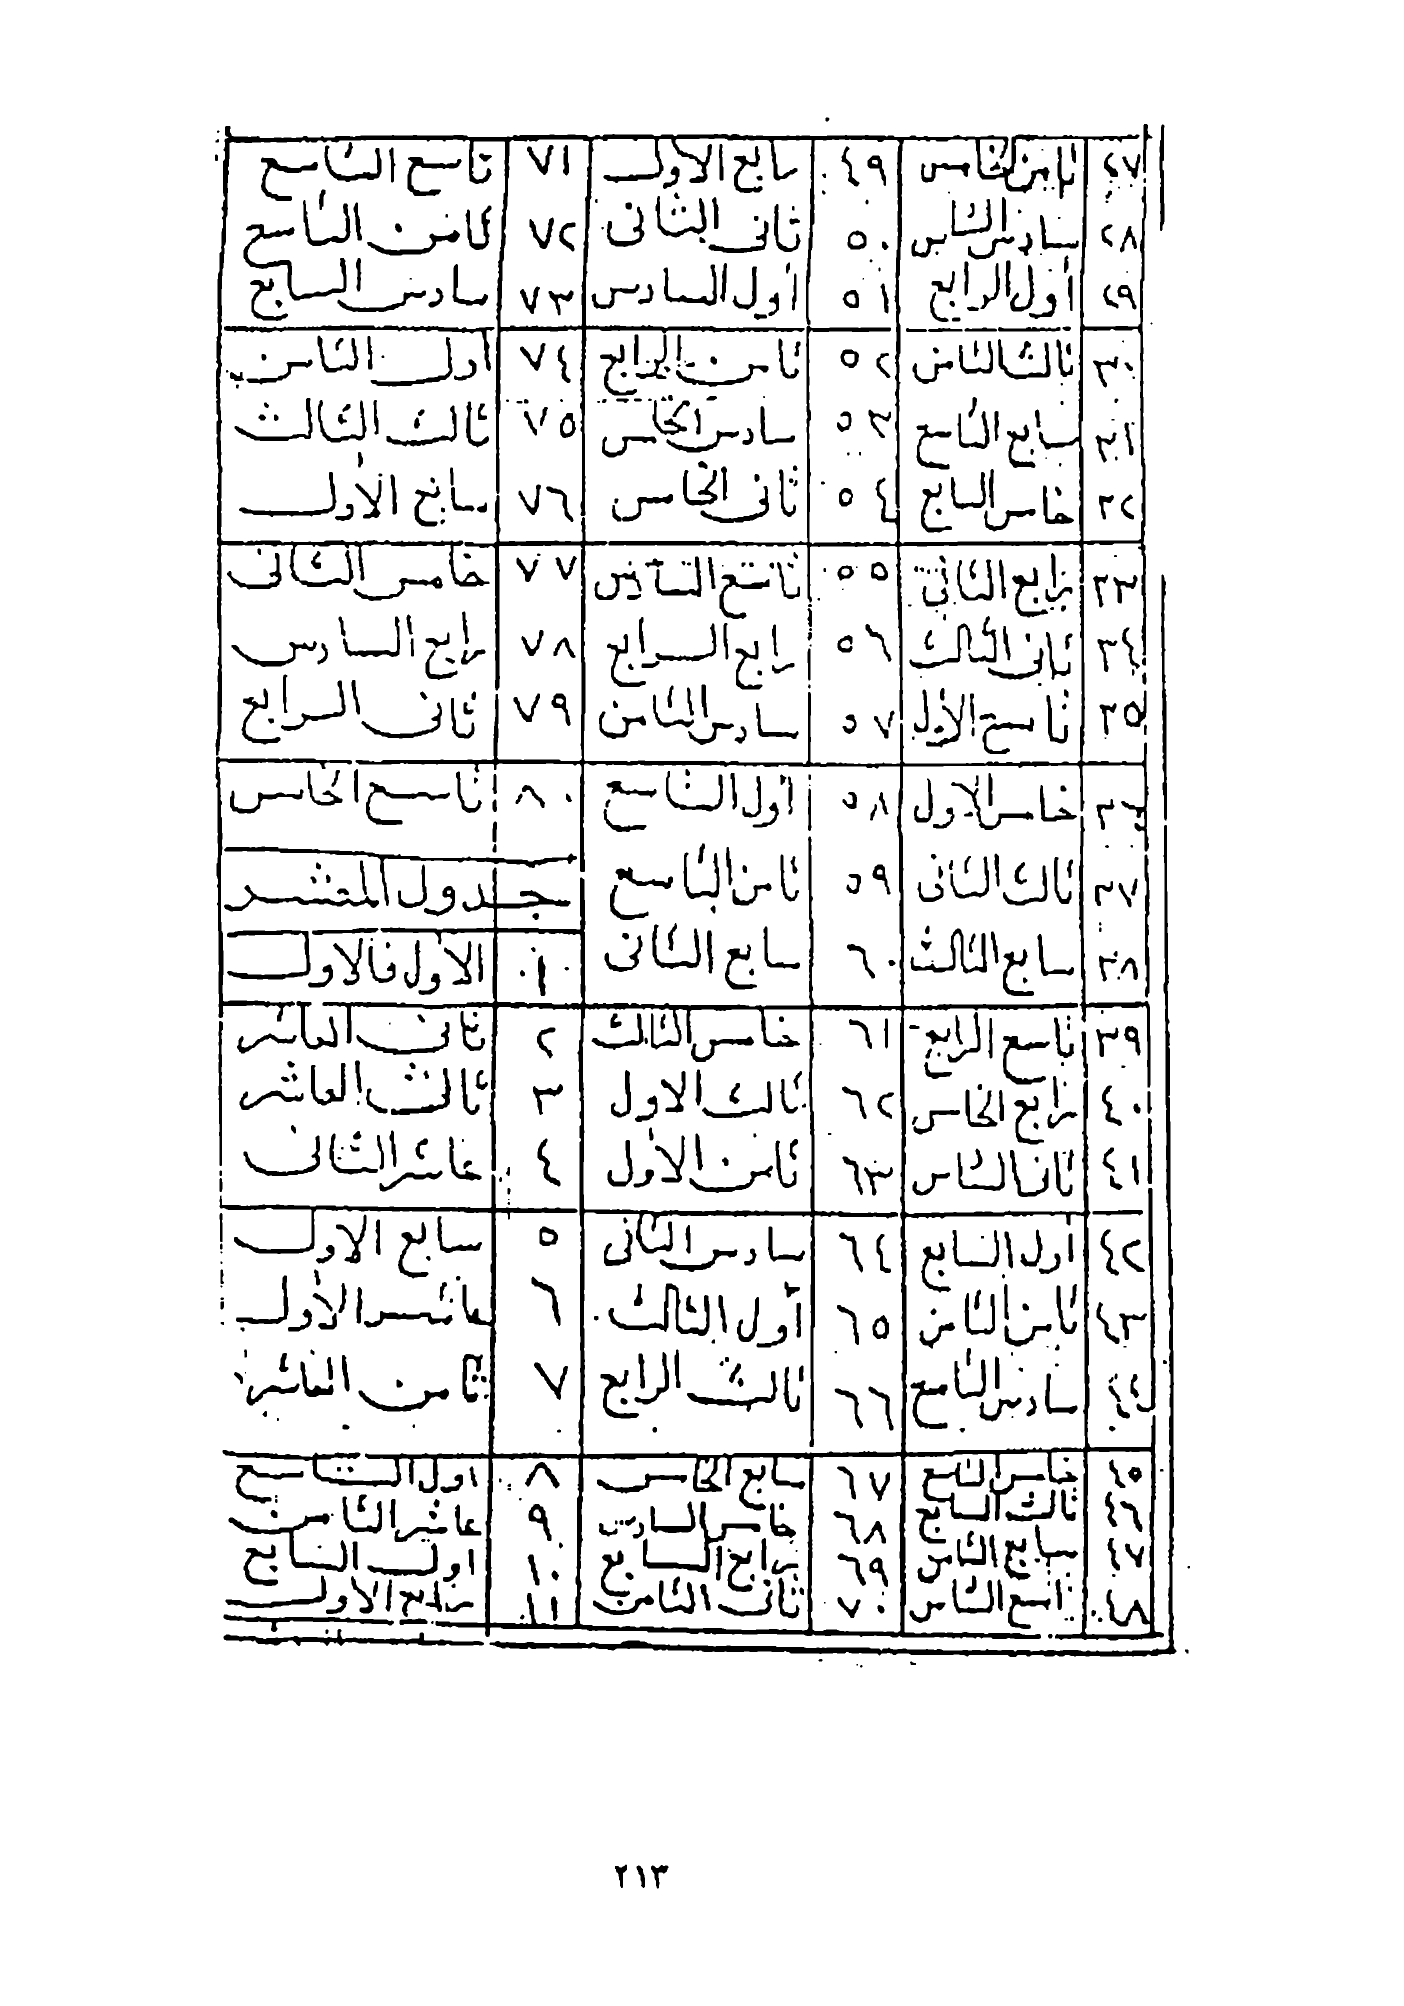 ٢٧ ثامن الخامس ٤٩ سابع الاول ٧١ تاسع التاسع
٢٨ سادس السادس ٥٠ ثانى الثانى ٧٢ ثامن التاسع
٢٩ أول الرابع ٥١ أول السادس ٧٣ سادس السابع
٣٠ ثالث الثامن ٥٢ ثامن الرابع ٧٤ أول الثامن
٣١ سابع التاسع ٥٣ سادس الخامس ٧٥ ثالث الثالث
٣٢ خامس السابع ٥٤ ثانى الخامس ٧٦ سابع الأول
٣٣ رابع الثانى ٥٥ تاسع السادس ٧٧ خامس الثانى
٣٤ ثانى الثالث ٥٦ رابع الرابع ٧٨ رابع السادس
٣٥ تاسع الأول ٥٧ سادس الثامن ٧٩ ثانى الرابع
٣٦ خامس الاول ٥٨ أول التاسع ٨٠ تاسع الخامس
٣٧ ثالث الثانى ٥٩ ثامن السابع جدول المتشر
٣٨ سابع الثالث ٦٠ سابع الثانى ١ الأول فالاول
٣٩ تاسع الرابع ٦١ خامس الثالث ٢ ثانى العاشر
٤٠ رابع الخامس ٦٢ ثالث الاول ٣ ثالث العاشر
٤١ ثانى السادس ٦٣ ثامن الأول ٤ عاشر الثانى
٤٢ أول السابع ٦٤ سادس الثانى ٥ سابع الاول
٤٣ ثامن الثامن ٦٥ أول الثالث ٦ عاشر الأول
٤٤ سادس التاسع ٦٦ ثالث الرابع ٧ ثامن العاشر
٤٥ خامس التاسع ٦٧ سابع الخامس ٨ اول التاسع
٤٦ ثالث السابع ٦٨ خامس السادس ٩ عاشر الثامن
٤٧ سابع الثامن ٦٩ رابع السابع ١٠ اول السابع
٤٨ تاسع ٧٠ ثانى الثامن ١١ رابع الأول
٢١٣